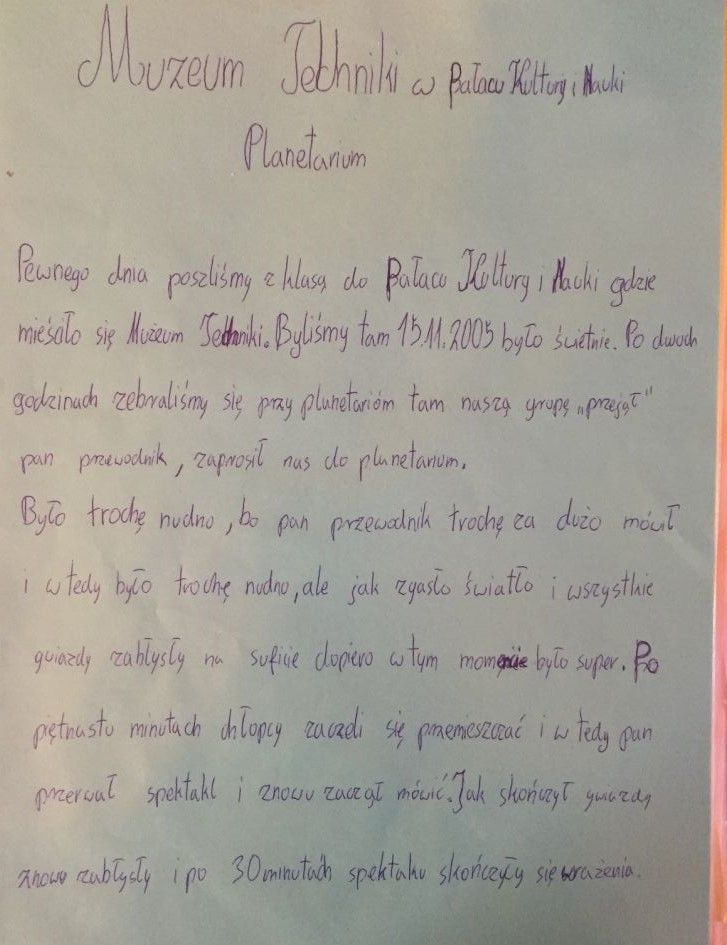 Muzeum Techniki w Pałacu Kultury i Nauki
Planetarium
Pewnego dnia poszliśmy z klasą do Pałacu Kultury i Nauki gdzie
mieśało się Muzeum Techniki. Byliśmy tam 15.11.2005 było świetnie. Po dwuch
godzinach zebraliśmy się przy planetarióm tam naszą grupę „przejął”
pan przewodnik, zaprosił nas do planetarium.
Było trochę nudno, bo pan przewodnik trochę za dużo mówił
i w tedy było trochę nudno, ale jak zgasło światło i wszystkie
gwiazdy zabłysły na suficie dopiero w tym momęcie było super. Po
piętnastu minutach chłopcy zaczeli się przemieszczać i w tedy pan
przerwał spektakl i znowu zaczął mówić. Jak skończył gwiazdy
znowu zabłysły i po 30 minutach spektaku skończyły się wrażenia.